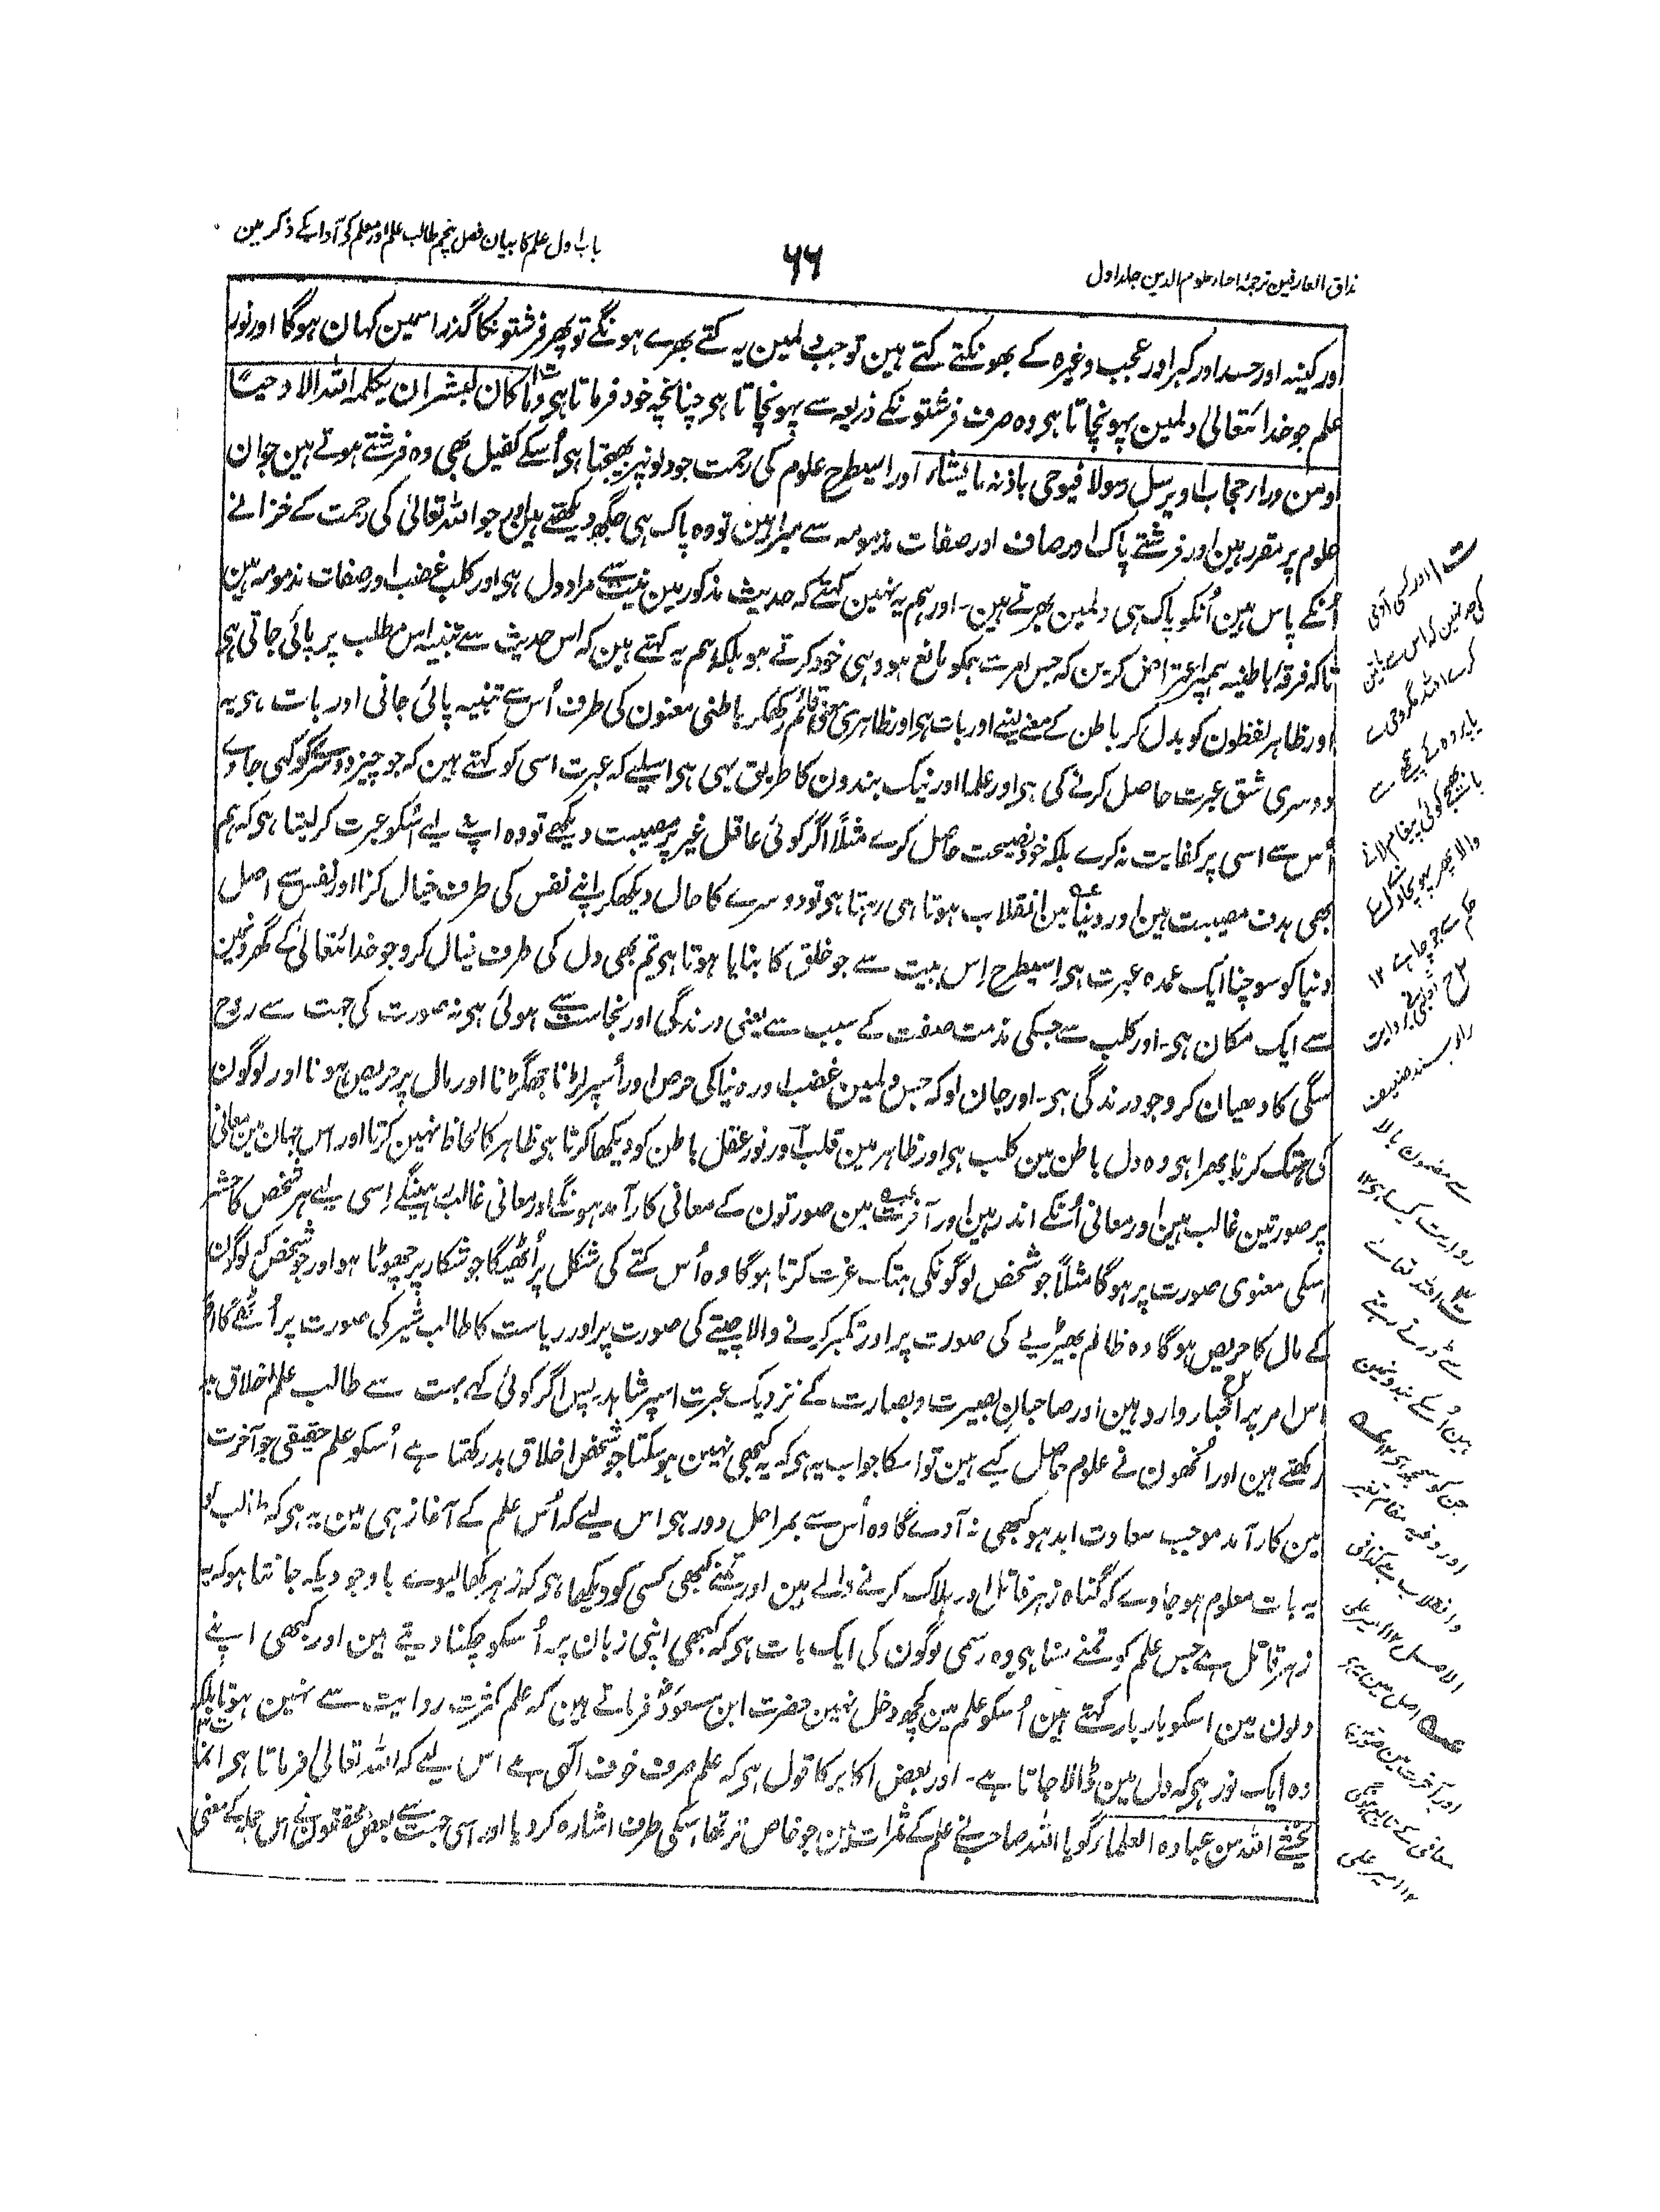 مذاق العارفین ترجمۂ احیاء علوم الدین جلد اول
۶۶
باب اول علم کا بیان فصل پنجم طالب علم اور معلم کی آداب کے ذکر مین
اور کینہ اور حسد اور کبر اور عجب وغیرہ کے بھونکتے کتے ہین تو جب دلمین یہ کتے بھرے ہونگے تو پھر فرشتونکا گذر اسمین کہان ہوگا اور نور
علم جو خدا تعالی دلمین پہونچاتا ہی وہ صرف فرشتونکے ذریعہ سے پہونچاتا ہی چنانچہ خود فرماتا ہی وما کان لبشر ان یکلمہ اللہ الا وحیًا
او من وراء حجاب او یرسل رسولا فیوحی باذنہ ما یشاء اور اسیطرح علوم کی رحمت جو دلونپر بھیجتا ہی اُسکے کفیل بھی وہ فرشتے ہوتے ہین جو ان
علوم پر مقرر ہین اور فرشتے پاک اور صاف اور صفات مذمومہ سے مبرا ہین تو وہ پاک ہی جگھ دیکھتے ہین اور جو اللہ تعالیٰ کی رحمت کے خزانے
اُنکے پاس ہین اُنکو پاک ہی دلمین بھرتے ہین۔ اور ہم یہ نہین کہتے کہ حدیث مذکور مین بیت سے مراد دل ہی اور کلب غضب اور صفات مذمومہ ہین
تاکہ فرقۂ باطنیہ ہمپر اعتراض کرین کہ جس امر سے ہمکو مانع ہو وہی خود کرتے ہو بلکہ ہم یہ کہتے ہین کہ اس حدیث سے تنبیہ اس مطلب پر پائی جاتی ہی
اور ظاہر لفظون کو بدل کر باطن کے معنے لینے اور بات ہی اور ظاہری معنی قائم رکھکر باطنی معنون کی طرف اُس سے تنبیہ پائی جانی اور بات ہی یہ
دوسری شق عبرت حاصل کرنے کی ہی اور علما اور نیک بندون کا طریق یہی ہی اسلیے کہ عبرت اسی کو کہتے ہین کہ جو چیز دوسرے کو کہی جاوے
اُس سے اسی پر کفایت نہ کرے بلکہ خود نصیحت حاصل کرے مثلاً اگر کوئی عاقل غیر پر مصیبت دیکھے تو وہ اپنے لیے اسکو عبرت کر لیتا ہی کہ ہم
بھی ہدف مصیبت ہین اور دنیا مین انقلاب ہوتا ہی رہتا ہی تو دوسرے کا حال دیکھکر اپنے نفس کی طرف خیال کرنا اور نفس سے اصل
دنیا کو سوچنا ایک عمدہ عبرت ہی اسیطرح اِس بیت سے جو خلق کا بنایا ہوتا ہی تم بھی دل کی طرف خیال کرو جو خدا تعالیٰ کے گھرونمین
سے ایک مکان ہی۔ اور کلب سے جسکی مذمت صفت کے سبب سے یعنی درندگی اور نجاست سے ہوئی ہی نہ صورت کی جہت سے روح
سگی کا دھیان کرو جو درندگی ہی۔ اور جان لو کہ جس دلمین غضب اور دنیا کی حرص اور اُسپر لڑنا جھگڑنا اور مال پر حریص ہونا اور لوگون
کی ہتک کرنا بھرا ہی وہ دل باطن مین کلب ہی اور ظاہر مین قلب اور نور عقل باطن کو دیکھا کرتا ہی ظاہر کا لحاظ نہین کرتا اور اس جہان مین معانی
پر صورتین غالب ہین اور معانی اُنکے اندر ہین اور آخرت مین صورتون کے معانی کارآمد ہونگے اور معانی غالب رہینگے اِسی لیے ہر شخص کا حشر
اسکی معنوی صورت پر ہوگا مثلاً جو شخص لوگونکی ہتک عزت کرتا ہوگا وہ اُس کتے کی شکل پر اُٹھیگا جو شکار پر چھوٹا ہو اور جو شخص کہ لوگون
کے مال کا حریص ہوگا وہ ظالم بھیڑیے کی صورت پر اور تکبر کرنے والا چیتے کی صورت پر اور ریاست کا طالب شیر کی صورت پر اُٹھے گا اور
اس امر پر اخبار وارد ہین اور صاحبان بصیرت و بصارت کے نزدیک عبرت اسپر شاہد۔ پس اگر کوئی کہے بہت سے طالب علم اخلاق بد
رکھتے ہین اور اُنھون نے علوم حاصل کیے ہین تو اسکا جواب یہ ہی کہ یہ کبھی نہین ہو سکتا جو شخص اخلاق بد رکھتا ہے اُسکو علم حقیقی جو آخرت
مین کارآمد موجب سعادت ابد ہو کبھی نہ آوے گا وہ اُس سے بمراحل دور ہی اس لیے کہ اُس علم کے آغاز ہی مین یہ ہی کہ طالب کو
یہ بات معلوم ہو جاوے کہ گناہ زہر قاتل اور ہلاک کرنے والے ہین اور تمنے کبھی کسی کو دیکھا ہی کہ زہر کھا لیوے باوجودیکہ جانتا ہو کہ یہ
زہر قاتل ہے جس علم کو تمنے سنا ہی وہ رسمی لوگون کی ایک بات ہی کہ کبھی اپنی زبان پر اُسکو چکنا دیتے ہین اور کبھی اپنے
دلون مین اسکو بار بار کہتے ہین اُسکو علم مین کچھ دخل نہین حضرت ابن مسعودؓ فرماتے ہین کہ علم کثرت روایت سے نہین ہوتا بلکہ
وہ ایک نور ہی کہ دل مین ڈالا جاتا ہے۔ اور بعض اکابر کا قول ہی کہ علم صرف خوف الٰہی ہے اس لیے کہ اللہ تعالیٰ فرماتا ہی انما
یخشے اللہ من عبادہ العلماء گویا اللہ صاحب نے علم کے ثمرات مین جو خاص تر تھا اسکی طرف اشارہ کر دیا اور اسی جہت سے بعض محققون نے اس جملے کے معنی
ت ۱ اور کسی آدمی
کی حد نہین کہ اس سے باتین
کرے اللہ مگر وحی سے
یا پردہ کے پیچھے سے
یا بھیجے کوئی پیغام لانے
والا پھر پہونچاوے اُسکے
حکم سے جو چاہے ۱۲
روایت
بسند ضعیف
سے مضمون بالا
روایت کیا ہی ۱۲
ت ۳ اللہ تعالے
سے ڈرتے رہتے
ہین اُسکے بندونمین
جن کو سمجھ ہی ۱۲ عہ
اور دنیا مقام تغیر
و انقلاب ہے کذا فی
الاصل ۱۲ امیر علی
عہ اصل مین یہ ہی
اور آخرت مین صورتین
معانی کے تابع ہونگی
۱۲ امیر علی